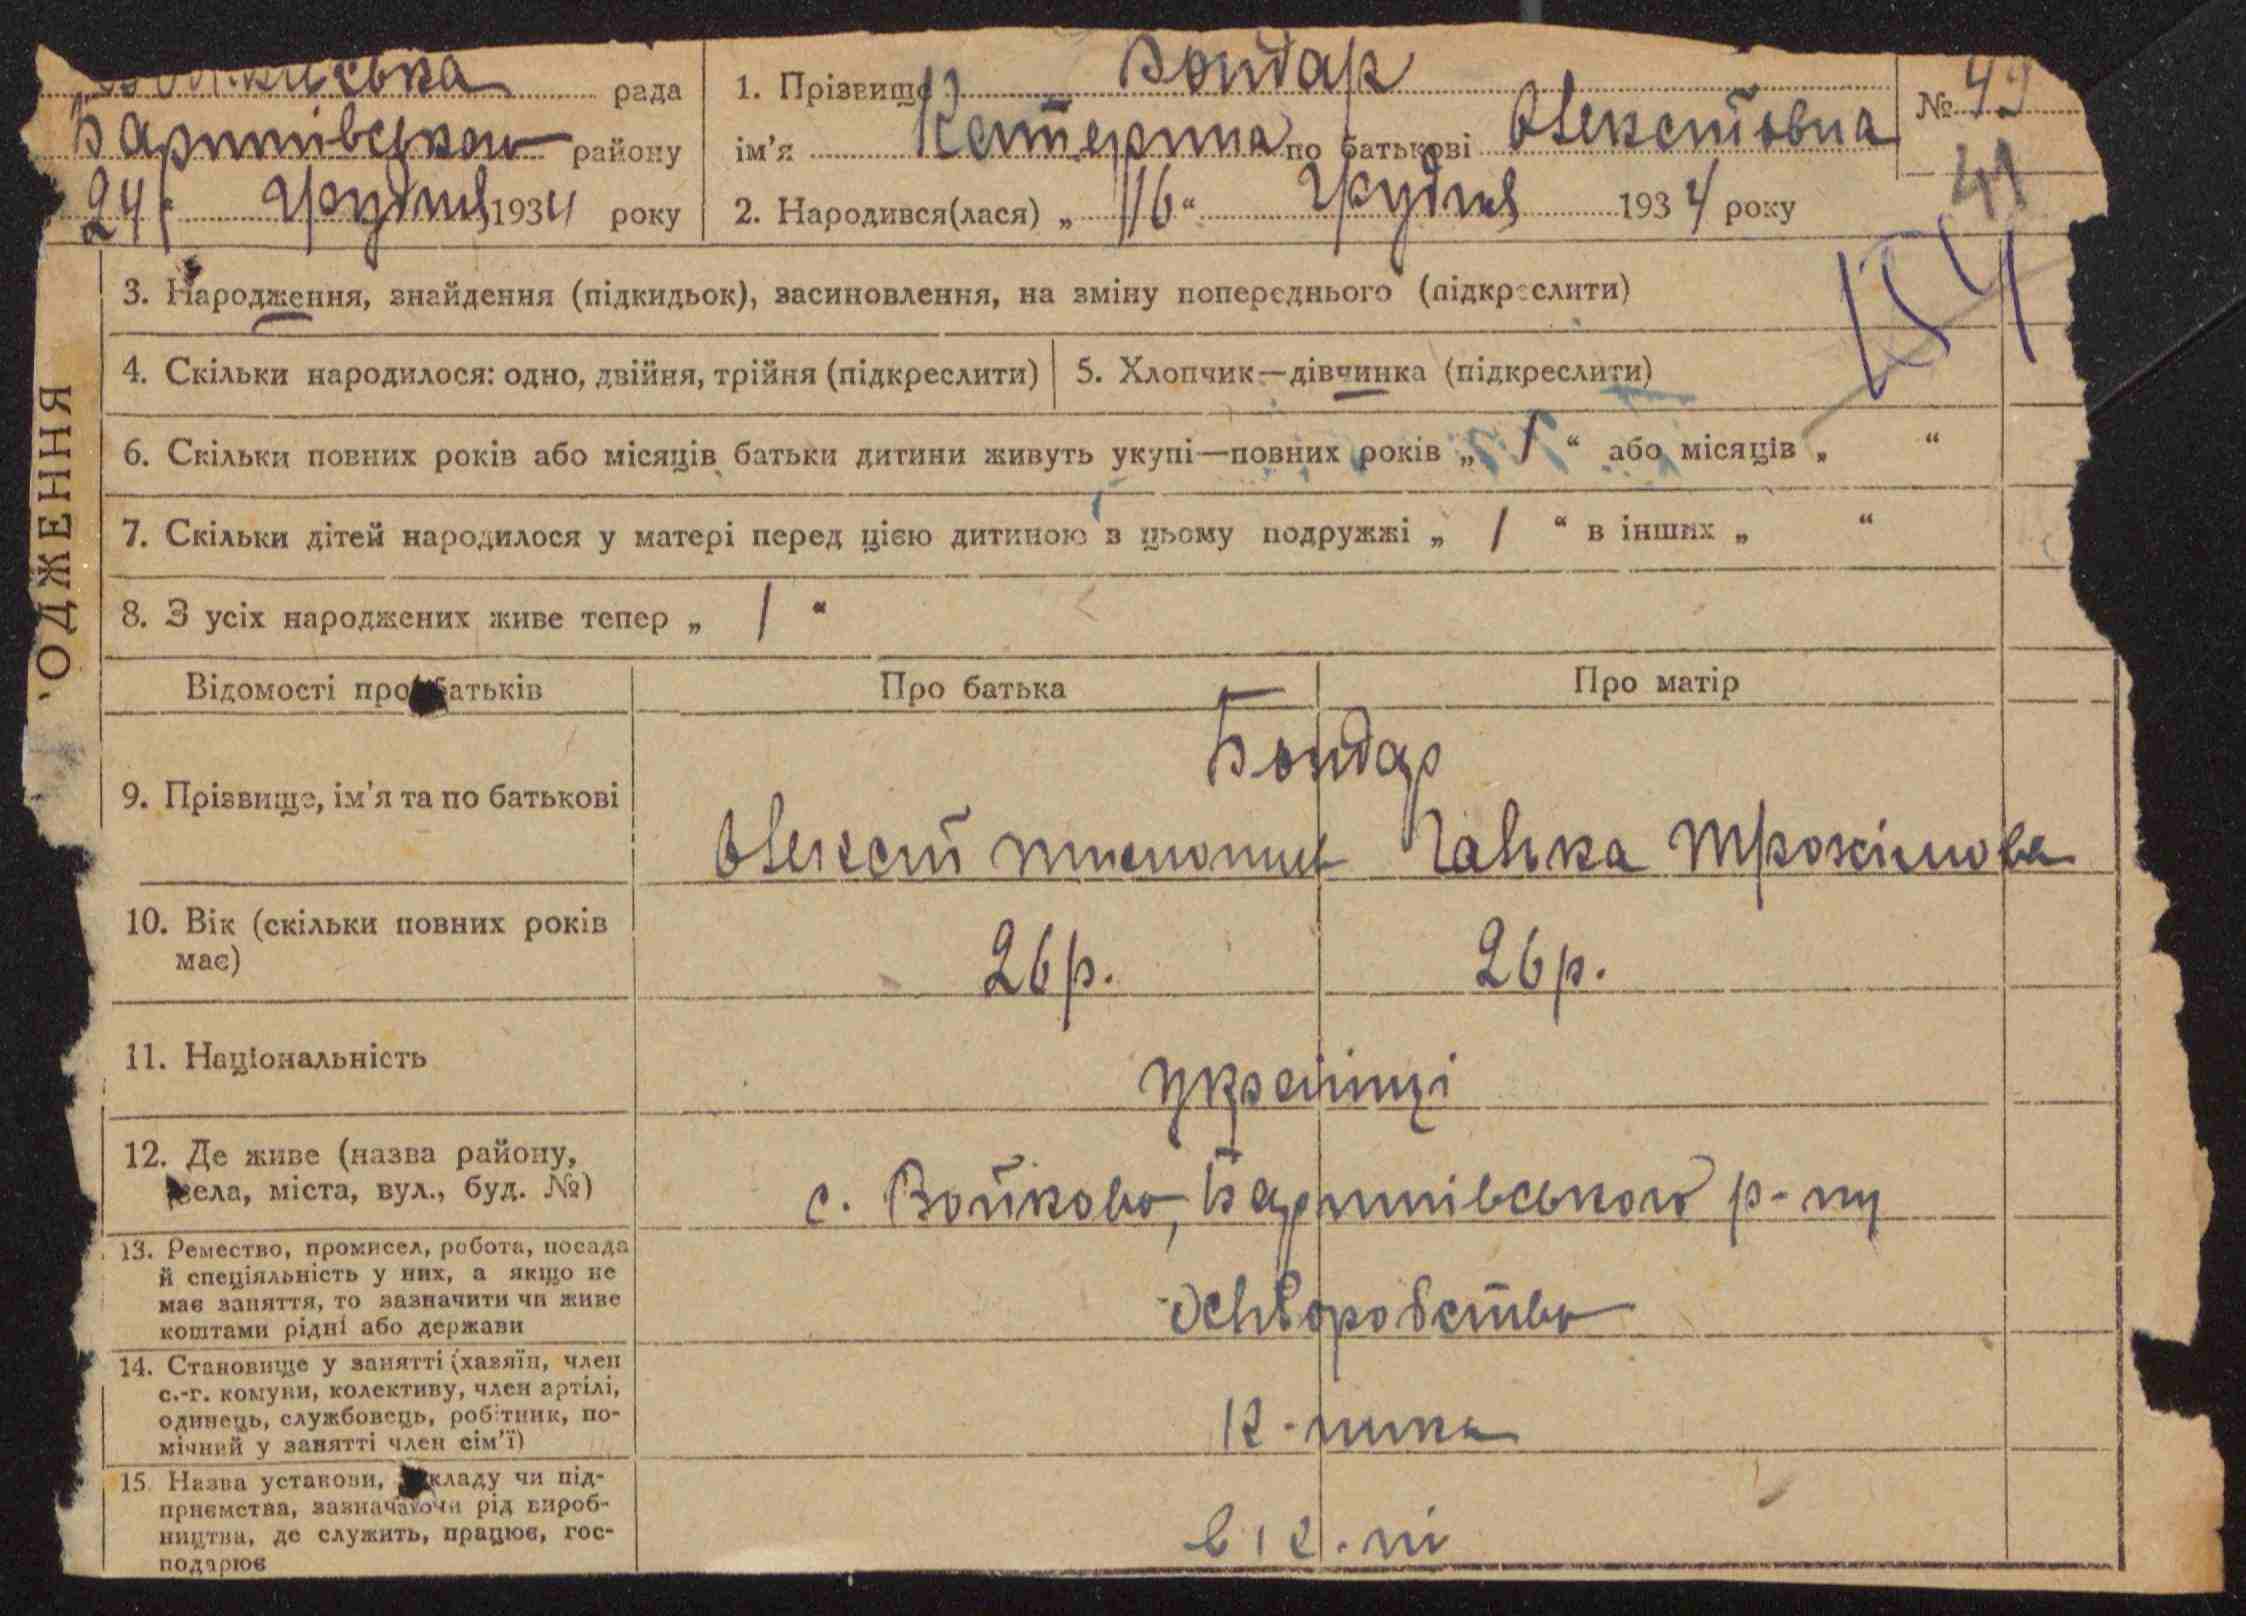 рада
Баришівського району
24 грудня 1934 року
1. Прізвище Бондар
ім'я Катерина по батькові Олексіївна
2. Народився(лася) „16“ грудня 1934 року
№ 49
41
154
ОДЖЕННЯ
3. Народження, знайдення (підкидьок), засиновлення, на зміну попереднього (підкреслити)
4. Скільки народилося: одно, двійня, трійня (підкреслити)
5. Хлопчик—дівчинка (підкреслити)
6. Скільки повних років або місяців батьки дитини живуть укупі—повних років „ 1 “ або місяців „ “
7. Скільки дітей народилося у матері перед цією дитиною в цьому подружжі „ 1 “ в інших „ “
8. З усіх народжених живе тепер „ 1 “
Відомості про батьків
Про батька
Про матір
9. Прізвище, ім'я та по батькові
Бондар
Олексій
Галька Трохімова
10. Вік (скільки повних років
має)
26 р.
26 р.
11. Національність
українці
12. Де живе (назва району,
села, міста, вул., буд. №)
с. Войково, Баришівського р-ну
13. Ремество, промисел, робота, посада
й спеціяльність у них, а якщо не
має заняття, то зазначити чи живе
коштами рідні або держави
14. Становище у занятті (хазяїн, член
с.-г. комуни, колективу, член артілі,
одинець, службовець, робітник, по-
мічний у занятті член сім'ї)
15. Назва установи, закладу чи під-
приємства, зазначаючи рід вироб-
ництва, де служить, працює, гос-
подарює